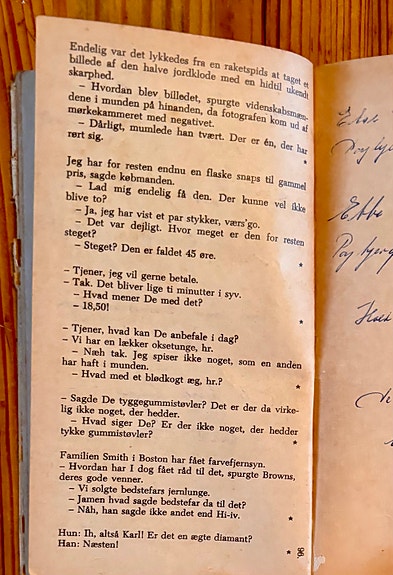 Endelig var det lykkedes fra en raketspids at taget et
billede af den halve jordklode med en hidtil ukendt
skarphed.
– Hvordan blev billedet, spurgte videnskabsmæn-
dene i munden på hinanden, da fotografen kom ud af
mørkekammeret med negativet.
– Dårligt, mumlede han tvært. Der er én, der har
rørt sig.
*
Jeg har for resten endnu en flaske snaps til gammel
pris, sagde købmanden.
– Lad mig endelig få den. Der kunne vel ikke
blive to?
– Ja, jeg har vist et par stykker, værs'go.
– Det var dejligt. Hvor meget er den for resten
steget?
– Steget? Den er faldet 45 øre.
*
– Tjener, jeg vil gerne betale.
– Tak. Det bliver lige ti minutter i syv.
– Hvad mener De med det?
– 18,50!
*
– Tjener, hvad kan De anbefale i dag?
– Vi har en lækker oksetunge, hr.
– Næh tak. Jeg spiser ikke noget, som en anden
har haft i munden.
– Hvad med et blødkogt æg, hr.?
*
– Sagde De tyggegummistøvler? Det er der da virke-
lig ikke noget, der hedder.
– Hvad siger De? Er der ikke noget, der hedder
tykke gummistøvler?
*
Familien Smith i Boston har fået farvefjernsyn.
– Hvordan har I dog fået råd til det, spurgte Browns,
deres gode venner.
– Vi solgte bedstefars jernlunge.
– Jamen hvad sagde bedstefar da til det?
– Nåh, han sagde ikke andet end Hi-iv.
*
Hun: Ih, altså Karl! Er det en ægte diamant?
Han: Næsten!
*
Ebbe